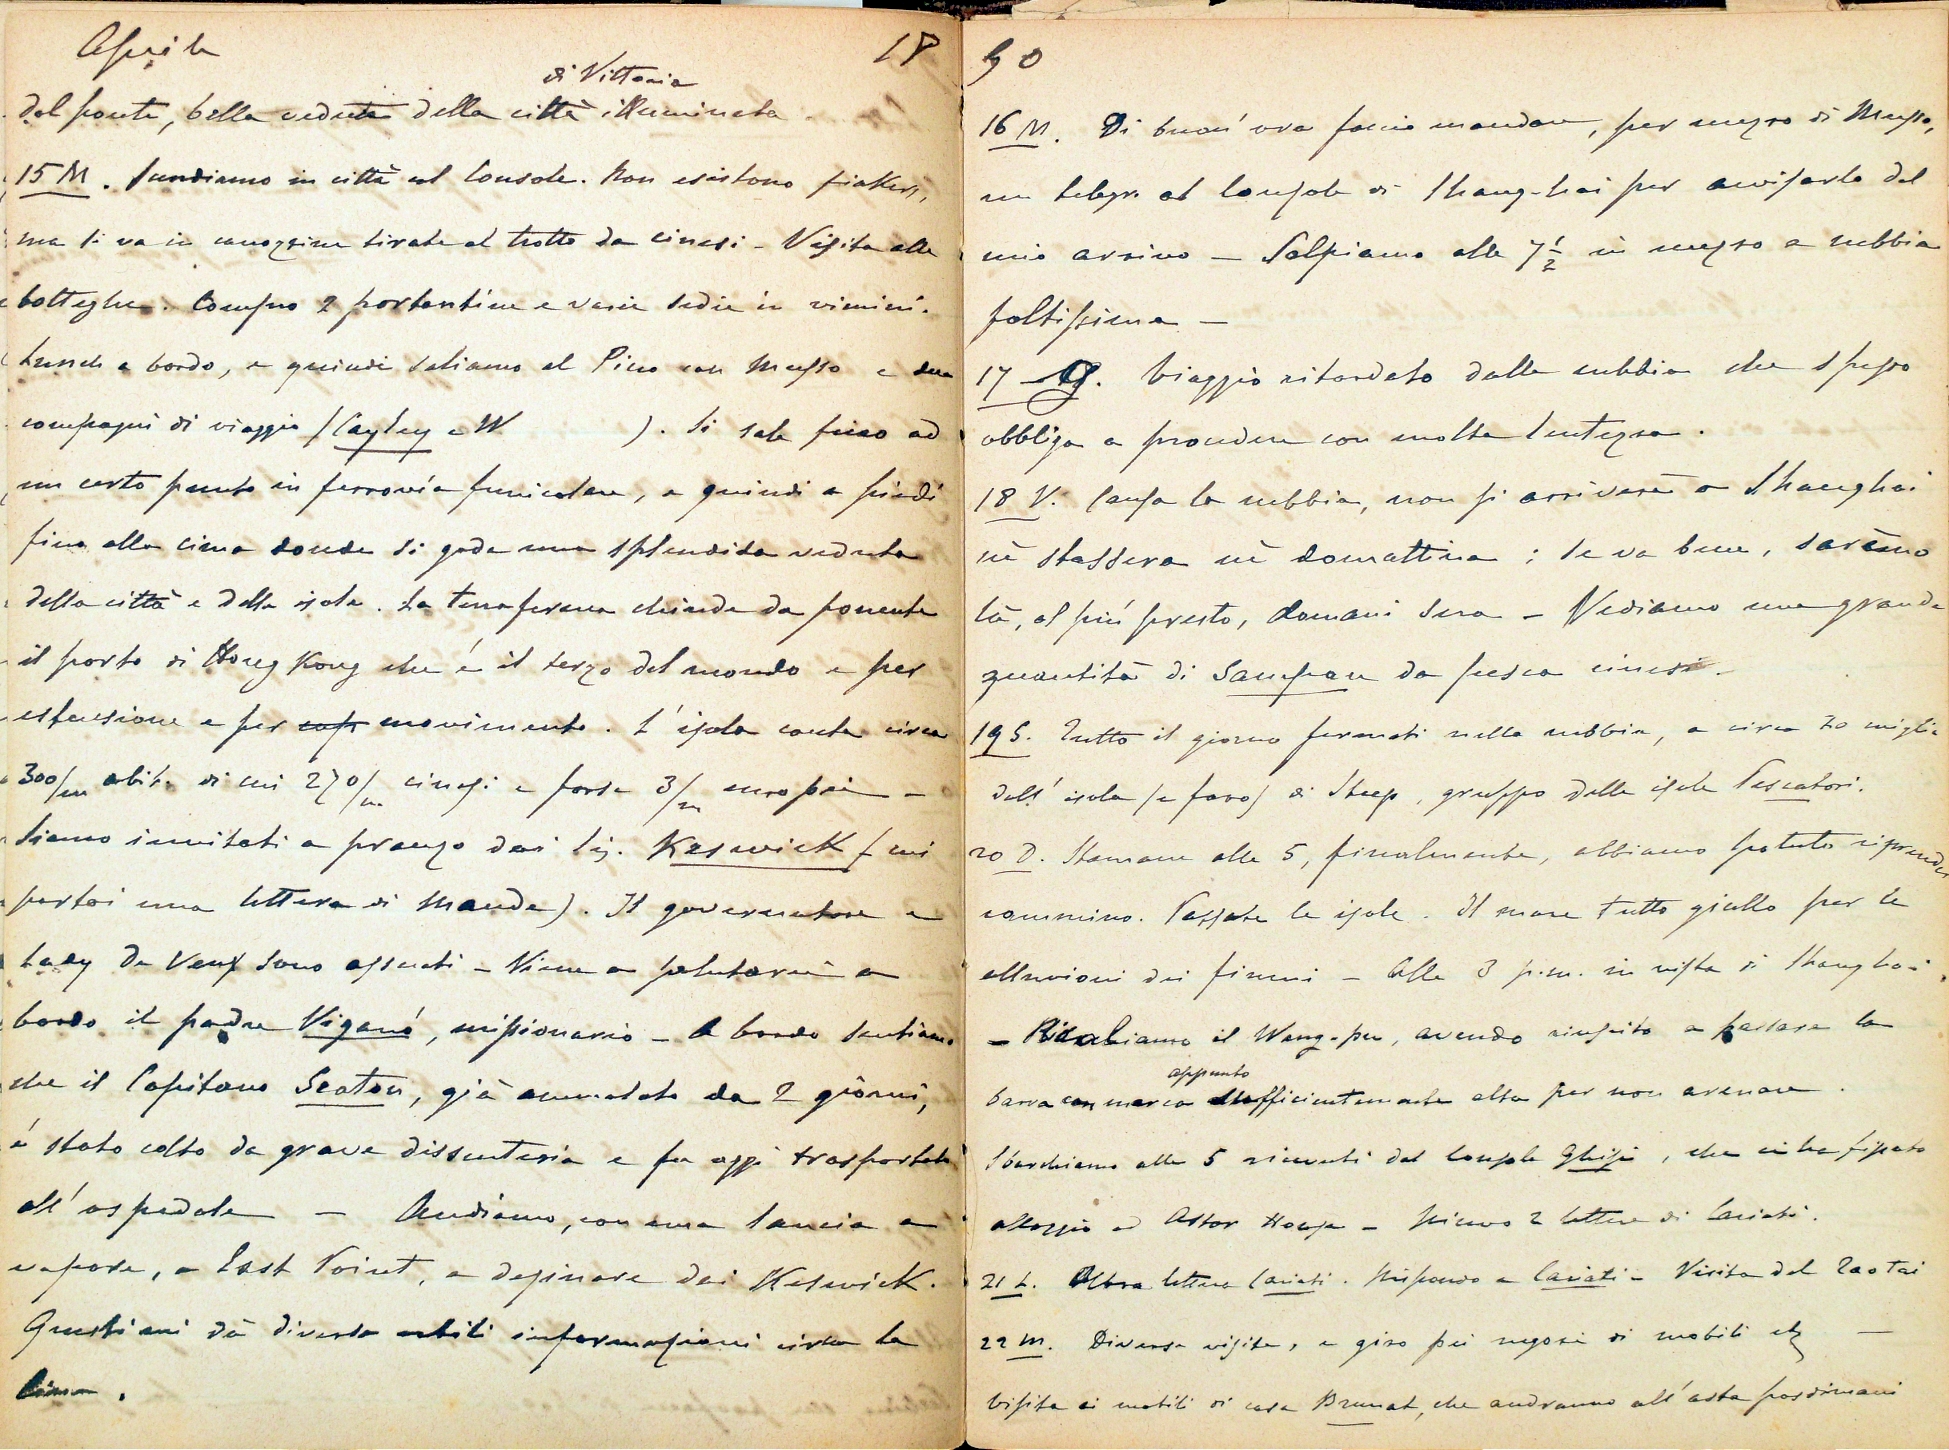 Aprile 18
di Vittoria
dal ponte, bella veduta della città illuminata.
15 M. Scendiamo in città col Console. Non esistono fiakers,
ma si va in carrozzine tirate al trotto da cinesi - Visita alle
botteghe. Compro 2 portantine e varie sedie in vimini.
Lunch a bordo, e quindi saliamo al Picco con Musso e due
compagni di viaggio (Cayley e W ). Si sale fino ad
un certo punto in ferrovia funicolare, e quindi a piedi
fino alla cima donde si gode una splendida veduta
della città e della isola. La terraferma chiude da ponente
il porto di Hong Kong che è il terzo del mondo e per
estensione e per movimento. L'isola conta circa
300/m abit. di cui 270/m cinesi e forse 3/m europei -
Siamo invitati a pranzo dai Sig. Keswick (cui
portai una lettera di Maude). Il governatore e
Lady des Veux sono assenti - Viene a salutarmi a
bordo il padre Viganò, missionario - A bordo sentiamo
che il Capitano Seaton, già ammalato da 2 giorni,
è stato colto da grave dissenteria e fu oggi trasportato
all'ospedale - Andiamo, con una lancia a
vapore, a East Point, a desinare dai Keswick.
Questi mi dà diverse utili informazioni circa la
Cina.
90
16 M. Di buon'ora faccio mandare, per mezzo di Musso,
un telegr. al Console di Shang-hai per avvisarlo del
mio arrivo - Salpiamo alle 7 1/2 in mezzo a nebbia
foltissima -
17 G. Viaggio ritardato dalla nebbia che spesso
obbliga a procedere con molta lentezza.
18 V. Causa la nebbia, non si arriverà a Shanghai
nè stassera nè domattina; se va bene, sarèmo
là, al più presto, domani sera - Vediamo una grande
quantità di Sampan da pesca cinesi.
19 S. Tutto il giorno fermati nella nebbia, a circa 70 miglia
dall'isola (e faro) di Steep, gruppo delle isole Pescatori.
20 D. Stamane alle 5, finalmente, abbiamo potuto riprender
cammino. Passate le isole. Il mare tutto giallo per le
alluvioni dei fiumi - Alle 3 p.m. in vista di Shanghai.
- Risaliamo il Wang-pu, avendo riuscito a passare la
appunto
barra con marea sufficientemente alta per non arenare.
Sbarchiamo alle 5 ricevuti dal Console Ghisi, che ci ha fissato
alloggio ad Astor House - Ricevo 2 lettere di Cariati.
21 L. Altra lettera Cariati. Rispondo a Cariati - Visita del Taotai
22 M. Diverse visite, e giro pei negozi di mobili etc -
Visita ai mobili di casa Brunat, che andranno all'asta posdimani